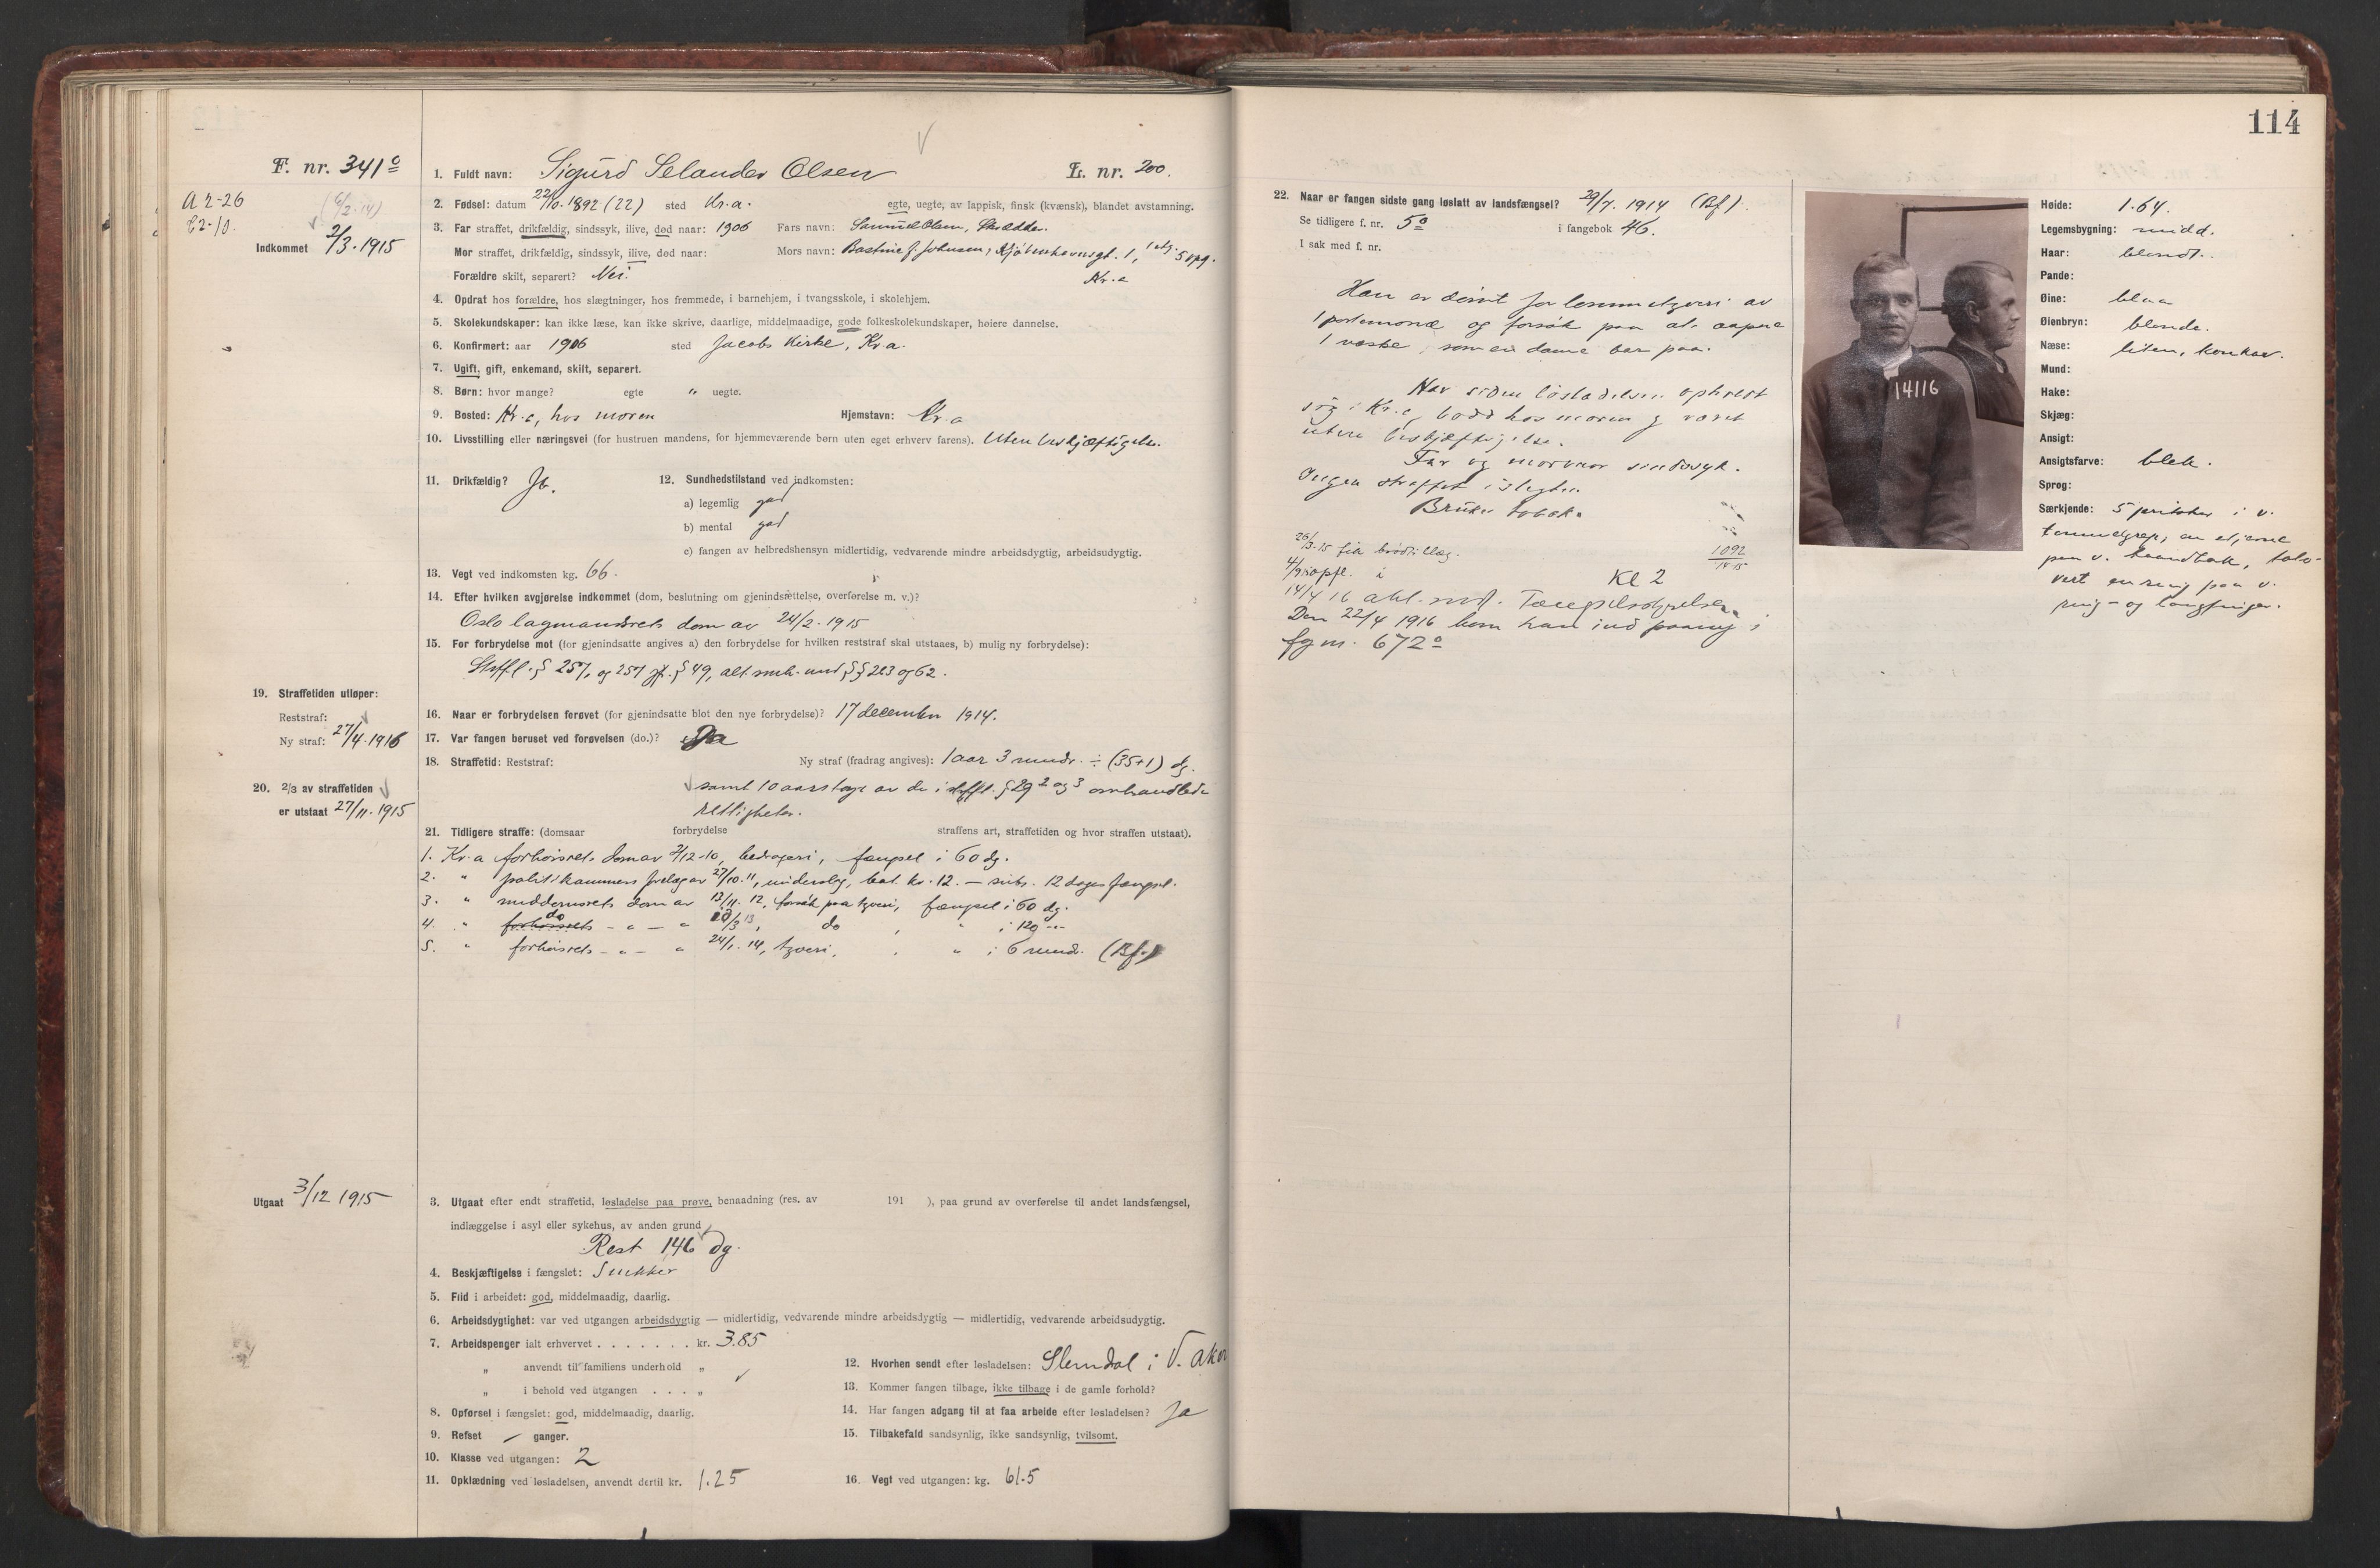 114
F. nr. 341º
1. Fuldt navn: Sigurd Selander Olsen L. nr. 200.
A 2-26
(6/2-14)
C 2-10.
Indkommet 2/3. 1915
2. Fødsel: datum 22/10. 1892 (22) sted Kr.a. egte, uegte, av lappisk, finsk (kvænsk), blandet avstamning.
3. Far straffet, drikfældig, sindssyk, ilive, død naar: 1906 Fars navn: Samuel Olsen,
Mor straffet, drikfældig, sindssyk, ilive, død naar: Mors navn: Bastine f. Johnsen, Kjøbenhavnsgt. 1, 1 etg. 5 opg.
Forældre skilt, separert? Nei. Kr.a
4. Opdrat hos forældre, hos slægtninger, hos fremmede, i barnehjem, i tvangsskole, i skolehjem.
5. Skolekundskaper: kan ikke læse, kan ikke skrive, daarlige, middelmaadige, gode folkeskolekundskaper, høiere dannelse.
6. Konfirmert: aar 1906 sted Jacobs Kirke, Kr.a.
7. Ugift, gift, enkemand, skilt, separert.
8. Børn: hvor mange? egte " uegte.
9. Bosted: Kr.a, hos moren Hjemstavn: Kr.a
10. Livsstilling eller næringsvei (for hustruen mandens, for hjemmeværende børn uten eget erhverv farens). Uten beskjæftigelse.
11. Drikfældig? Ja. 12. Sundhedstilstand ved indkomsten:
a) legemlig god
b) mental god
c) fangen av helbredshensyn midlertidig, vedvarende mindre arbeidsdygtig, arbeidsudygtig.
13. Vegt ved indkomsten kg. 66.
14. Efter hvilken avgjørelse indkommet (dom, beslutning om gjenindsættelse, overførelse m. v.)?
Oslo lagmandsrets dom av 24/2. 1915
15. For forbrydelse mot (for gjenindsatte angives a) den forbrydelse for hvilken reststraf skal utstaaes, b) mulig ny forbrydelse):
Strffl. § 257, og 257 jf. § 49, alt smh. med §§ 263 og 62.
19. Straffetiden utløper:
Reststraf:
Ny straf: 27/4. 1916
16. Naar er forbrydelsen forøvet (for gjenindsatte blot den nye forbrydelse)? 17 december 1914.
17. Var fangen beruset ved forøvelsen (do.)?
18. Straffetid: Reststraf: Ny straf (fradrag angives): 1 aar 3 mndr. ÷ (35+1) dg.
samt 10 aars tap av de i strffl. § 29 2 og 3 omhandlede
rettigheter.
20. 2/3 av straffetiden
er utstaat 27/11. 1915
21. Tidligere straffe: (domsaar forbrydelse straffens art, straffetiden og hvor straffen utstaat).
1. Kr.a forhørsrets dom av 2/12-10, bedrageri, fængsel i 60 dg.
2. " politikammers forelæg av 27/10. 11, underslag, bøt. kr. 12. — subs. 12 dages fængsel.
3. " meddomsrets dom av 13/11. 12, forsøk paa tyveri, fængsel i 60 dg.
4. " forhørsrets do - " - " 10/3 13, do , " i 120 - "-
5. " forhørsrets - " - " 24/1. 14, tyveri, " " i 6 mndr. (Bf.)
Utgaat 3/12 1915
3. Utgaat efter endt straffetid, løsladelse paa prøve, benaadning (res. av 191 ), paa grund av overførelse til andet landsfængsel,
indlæggelse i asyl eller sykehus, av anden grund
Rest 146 dg.
4. Beskjæftigelse i fængslet: Snekker
5. Flid i arbeidet: god, middelmaadig, daarlig.
6. Arbeidsdygtighet: var ved utgangen arbeidsdygtig — midlertidig, vedvarende mindre arbeidsdygtig — midlertidig, vedvarende arbeidsudygtig.
7. Arbeidspenger ialt erhvervet . . . . . . . kr. 3.85
" anvendt til familiens underhold "
" i behold ved utgangen . . . "
8. Opførsel i fængslet: god, middelmaadig, daarlig.
9. Refset – ganger.
10. Klasse ved utgangen: 2
11. Opklædning ved løsladelsen, anvendt dertil kr. 1.25
12. Hvorhen sendt efter løsladelsen: Slemdal i V. aker
13. Kommer fangen tilbage, ikke tilbage i de gamle forhold?
14. Har fangen adgang til at faa arbeide efter løsladelsen? Ja
15. Tilbakefald sandsynlig, ikke sandsynlig, tvilsomt.
16. Vegt ved utgangen: kg. 61.5
22. Naar er fangen sidste gang løslatt av landsfængsel? 29/7. 1914 (Bf).
Se tidligere f. nr. 5º i fangebok 46.
I sak med f. nr.
Han er dømt for lommetyveri av
1 portemonæ og forsøk paa at aapne
1 væske, som en dame bar paa.
Har siden løsladelsen opholdt
sig i Kr.a, bodd hos moren og været
uten beskjæftigelse.
Far og mormor sindssyk.
Ingen straffet i slegten.
Bruker tobak.
26/3-15 fik brødtillæg.
1092
14-15
4/9 15 opfl. i Kl 2
14/4 16
Den 22/4 1916 kom han ind paany i
fg nr. 672º
14116
Høide: 1.64.
Legemsbygning: midd.
Haar: blondt.
Pande:
Øine: blaa
Øienbryn: blonde.
Næse: liten, konkav.
Mund:
Hake:
Skjæg:
Ansigt:
Ansigtsfarve: blek.
Sprog:
Særkjende: 5 prikker i v.
tommelgrep, en stjerne
paa v. haandbak, tato-
vert en ring paa v.
ring- og langfinger.